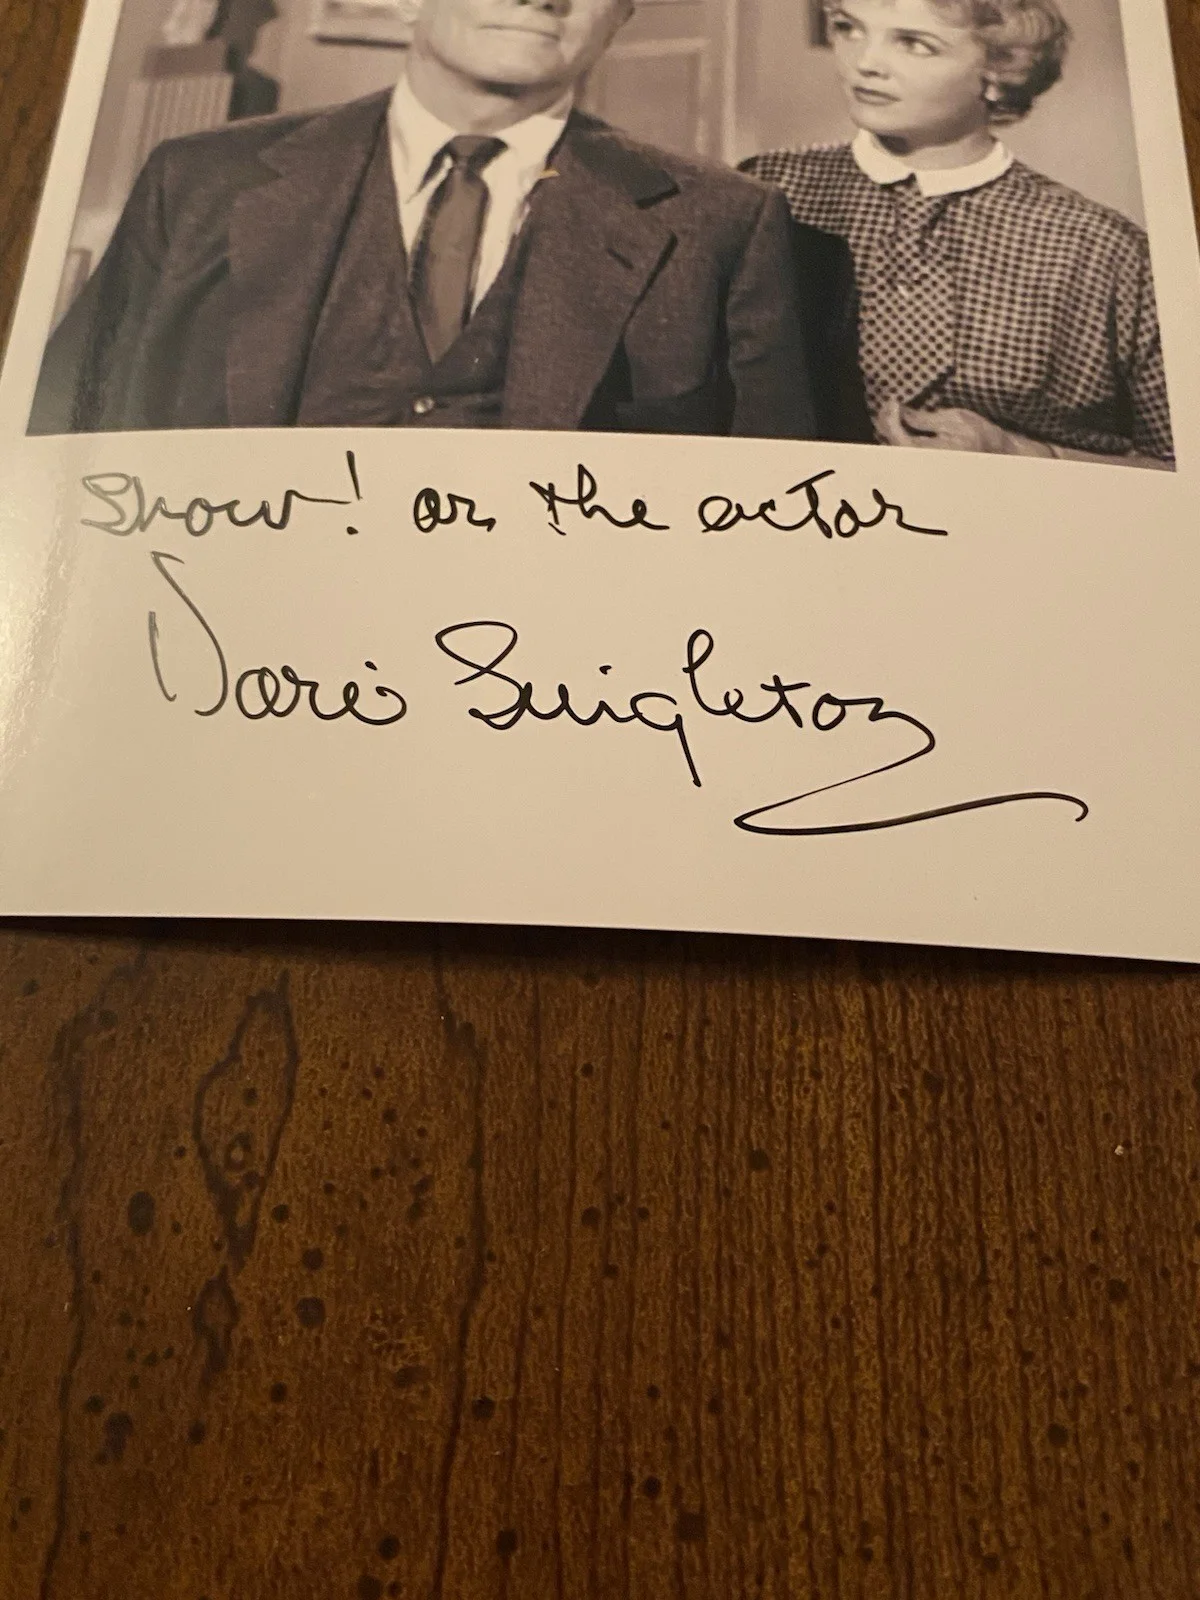 show! or the actor
Doris Singleton